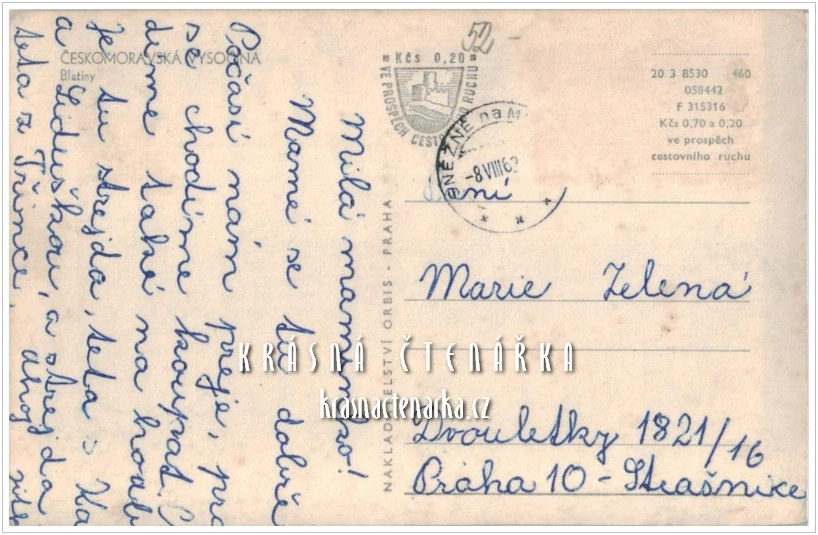 ČESKOMORAVSKÁ VYSOČINA
Blatiny
52
Kčs 0,20
VE PROSPĚCH CEST RUCHU
SNĚŽNÉ na M
-8.VIII.62
20 3 8530 460
058442
F 315316
Kčs 0,70 a 0,20
ve prospěch
cestovního ruchu
Milá maminko!
Mamé se tu dobře
Počasí nám přeje, pra
se chodíme koupat.
deme také na houb
Je tu strejda, teta s Ka
a Liduškou, a strejda
teta z Třince, ahoj
NAKLADATELSTVÍ ORBIS - PRAHA
ní
Marie Zelená
Dvouletky 1821/16
Praha 10 - Strašnice
KRÁSNÁ ČTENÁŘKA
krasnactenarka.cz